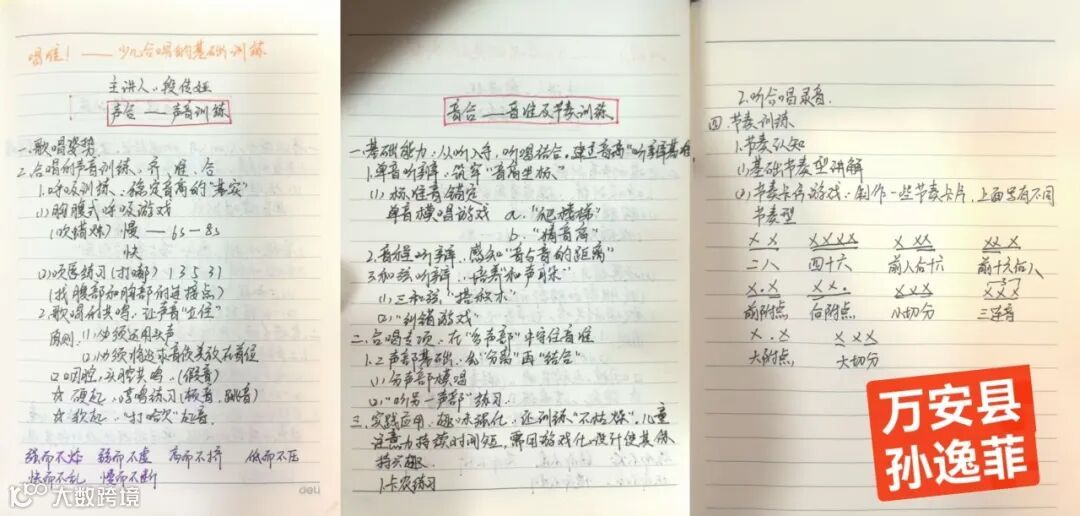 唱准！——少儿合唱的基础训练
主讲人：段传娅
声合——声音训练
一.歌唱姿势
二.合唱的声音训练：齐、准、合
1.呼吸训练：稳定音高的"基实"
(1)胸腹式呼吸游戏
(吹蜡烛) 慢—6s—8s
快
(2)顶医练习(打嘟) 1 3 5 3 1
(找腹部和胸部的连接点)
2.歌唱时共鸣，让声音"立住"
原则：(1)必须运用头声
(2)必须将追求音色美放在首位
(2)咽腔、头腔共鸣，(假音)
☆硬起，哼鸣练习(板音、跳音)
☆软起，"打哈欠"起音.
强而不炸 弱而不虚 高而不挤 低而不压
快而不乱 慢而不断
deli
音合——音准及节奏训练
一.基础能力：从听入手，听唱结合，建立音高"听辨基准"
1.单音听辨，筑牢"音高坐标"
(1)标准音锚定
单音模唱游戏 a."爬楼梯"
b."猜音高"
2.音程听辨，感知"音与音的距离"
3.和弦听辨，培养和声耳朵"
(1)三和弦"搭放木"
(2)"纠错游戏"
二.合唱专项，在"多声部"中守住音准
1.二声部基础：先"分离"再"结合"
(1)分声部模唱
(2)"听另一声部"练习
三.实践应用，趣味强化，让训练"不枯燥"，儿童
注意力持续时间短，需用游戏化设计使其保
持兴趣.
1.卡农练习
2.听合唱录音.
四.节奏训练
1.节奏认知
(1)基础节奏型讲解
(2)节奏卡片游戏：制作一些节奏卡片，上面写有不同
节奏型
X X X X X X X X X X X X
二八 四十六 前八后十六 前十六后八
X . X X X . X X X X X X
前附点 后附点 小切分 三连音
X . X X X X
大附点 大切分
万安县
孙逸菲
大数跨境